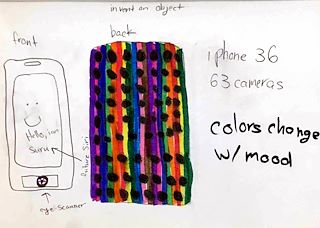 invent an object
front
back
iphone 36
63 cameras
colors change
w/ mood
Hello, im
suru
future siri
eye scanner